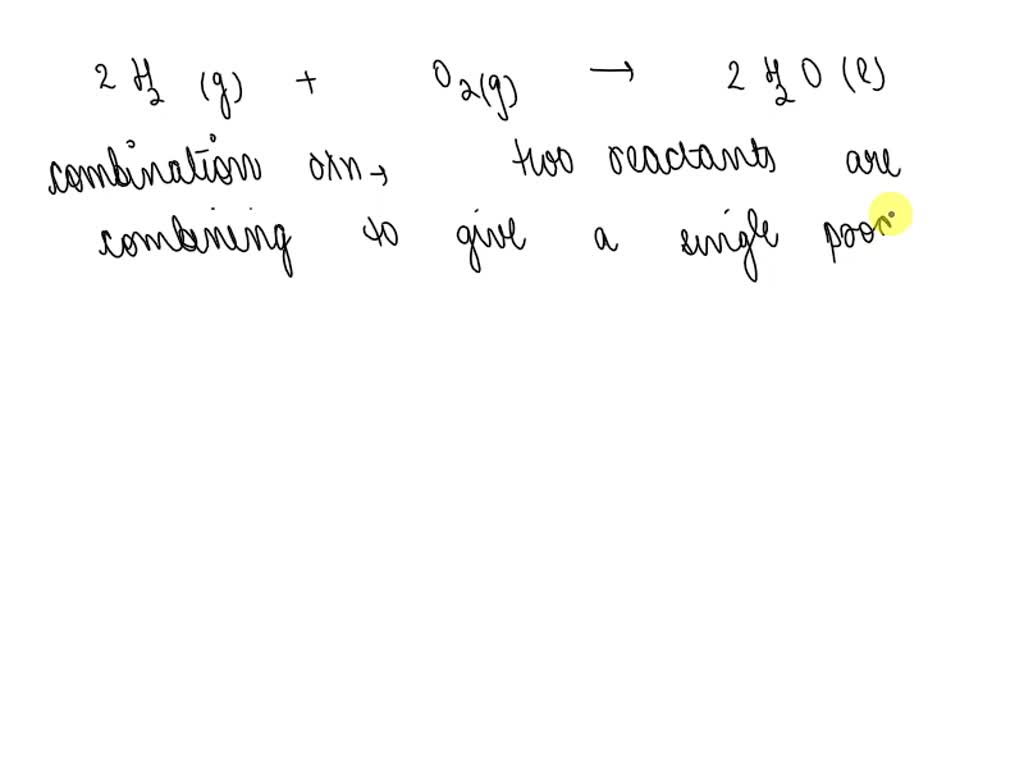 2 H₂ (g) + O₂(g) → 2 H₂O (l)
combination rxn → two reactants are
combining to give a single